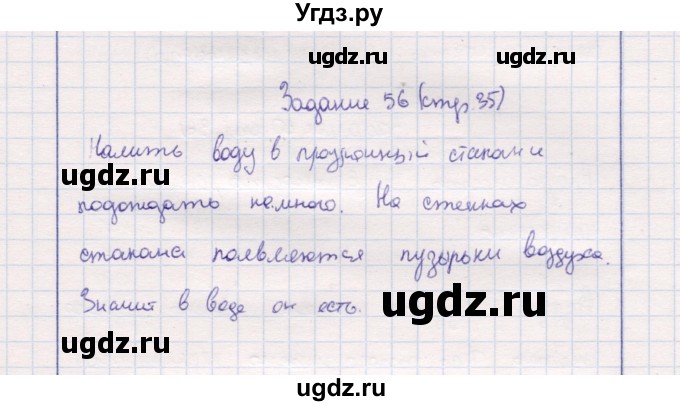 Угдз.ру
ugdz.ru ugdz.ru
Задание 56 (стр. 35)
Налить воду в прозрачный стакан и
ugdz.ru ugdz.ru
подождать немного. На стенках
стакана появляются пузырьки воздуха.
Значит в воде он есть.
ugdz.ru
ugdz.ru
ugdz.ru